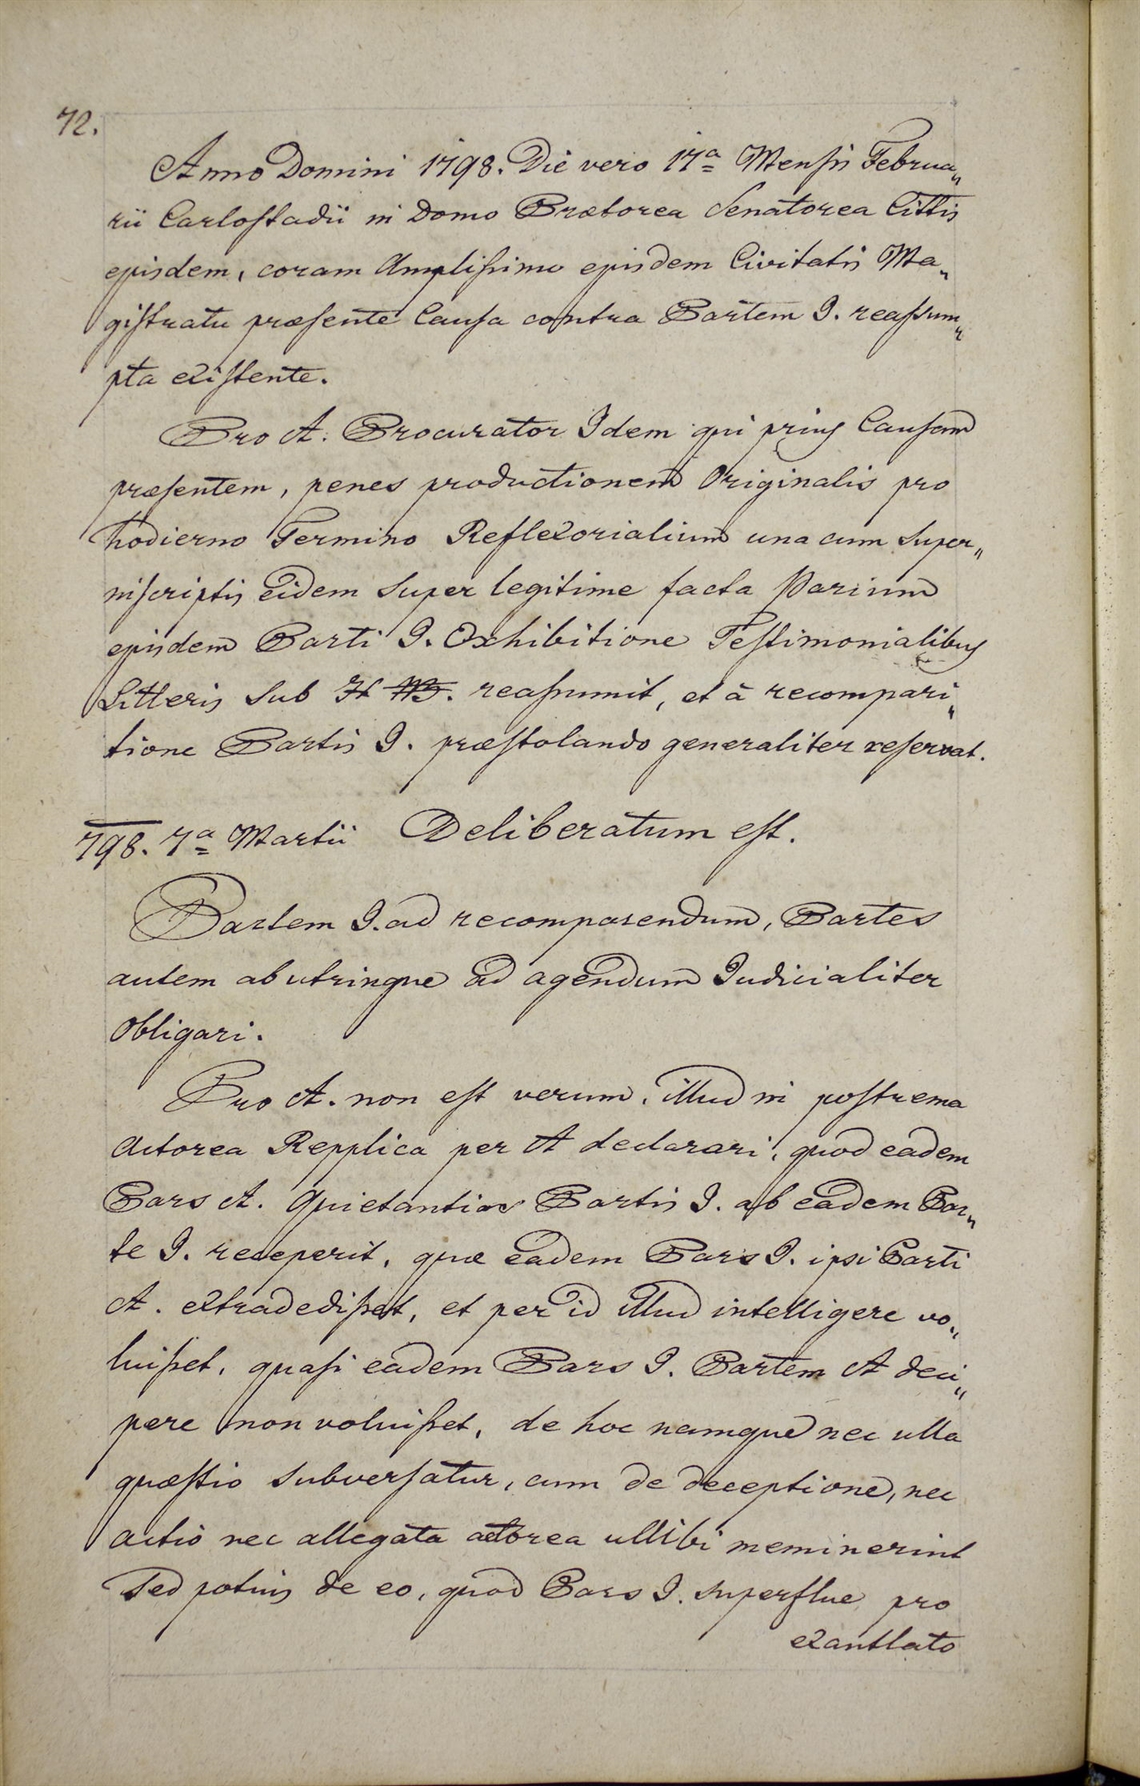 72.
Anno Domini 1798. Die vero 17a Mensis Februa„
rii Carlostadii in Domo Prætorea Senatorea Cittis
ejusdem, coram Amplissimo ejusdem Civitatis Ma„
gistratu præsente Causa contra Partem I. reassum„
pta existente.
Pro A. Procurator Idem qui prius Causam
præsentem, penes productionem Originalis pro
hodierno Termino Reflexorialium una cum super„
inscriptis eidem super legitime facta Parium
ejusdem Parti I. Exhibitione Testimonialibus
Litteris sub H reassumit, et à recompari„
tione Partis I. præstolando generaliter reservat.
798. 7a Martii Deliberatum est.
Partem I. ad recomparendum, Partes
autem ab utrinque ad agendum Judicialiter
obligari.
Pro A. non est verum, illud in postrema
Actorea Repplica per A declarari, quod eadem
Pars A. Quietantias Partis I. ab eadem Par„
te I. receperit, quæ eadem Pars I. ipsi Parti
A. extradedisset, et per id illud intelligere vo„
luisset, quasi eadem Pars I. Partem A deci„
pere non voluisset, de hoc namque nec ulla
quæstio subversatur, cum de deceptione, nec
actio nec allegata actorea ullibi meminerint
sed potius de eo, quod Pars I. superflue pro
exantlato